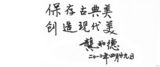 保存古典美
创造现代美
龚知德
二〇一〇年四月十九日